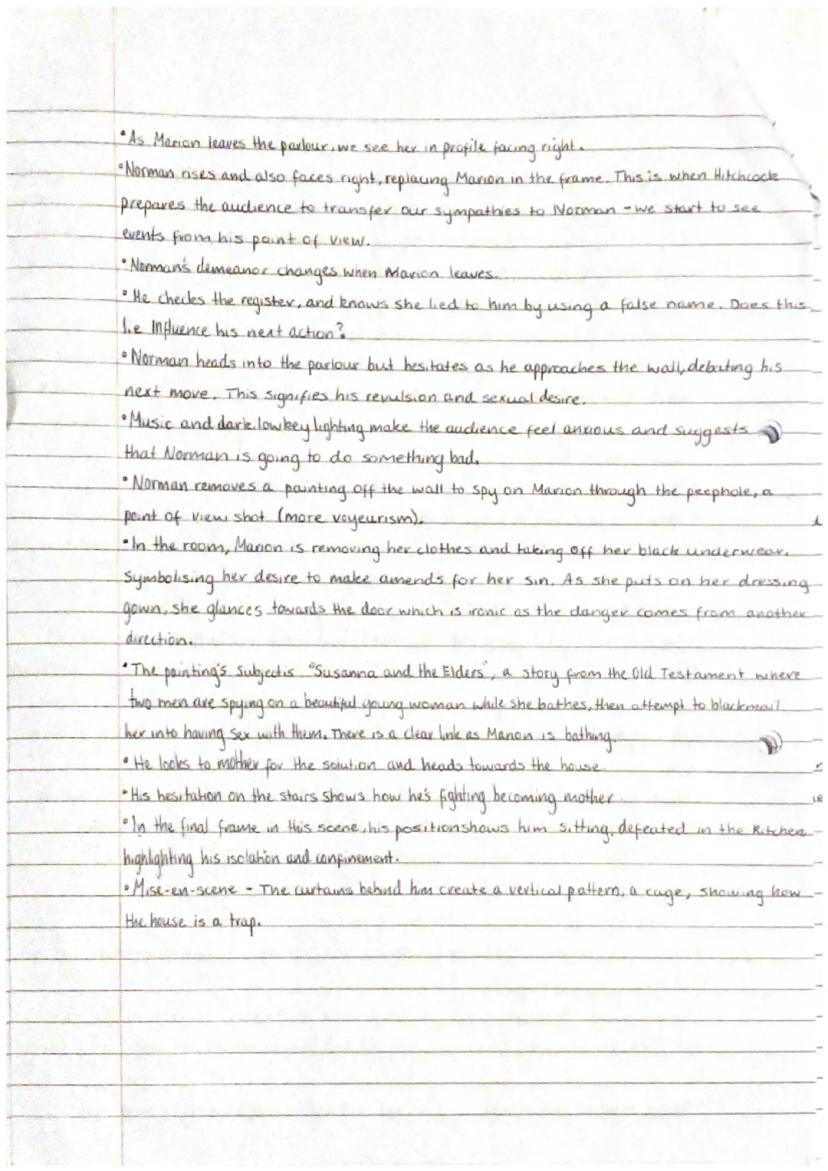 •As Marion leaves the parlour, we see her in profile facing right.
•Norman rises and also faces right, replacing Marion in the frame. This is when Hitchcock
prepares the audience to transfer our sympathies to Norman - we start to see
events from his point of view.
•Norman's demeanor changes when Marion leaves.
•He checks the register, and knows she lied to him by using a false name. Does this
i.e Influence his next action?
•Norman heads into the parlour but hesitates as he approaches the wall, debating his
next move. This signifies his revulsion and sexual desire.
•Music and dark lowkey lighting make the audience feel anxious and suggests
that Norman is going to do something bad.
•Norman removes a painting off the wall to spy on Marion through the peephole, a
point of view shot (more voyeurism).
•In the room, Marion is removing her clothes and taking off her black underwear.
Symbolising her desire to make amends for her sin. As she puts on her dressing
gown, she glances towards the door which is ironic as the danger comes from another
direction.
•The painting's subject is "Susanna and the Elders", a story from the Old Testament where
two men are spying on a beautiful young woman while she bathes, then attempt to blackmail
her into having sex with them. There is a clear link as Marion is bathing.
•He looks to mother for the solution and heads towards the house.
•His hesitation on the stairs shows how he's fighting becoming mother.
•In the final frame in this scene, his position shows him sitting, defeated in the kitchen
highlighting his isolation and confinement.
•Mise-en-scene - The curtains behind him create a vertical pattern, a cage, showing how
the house is a trap.